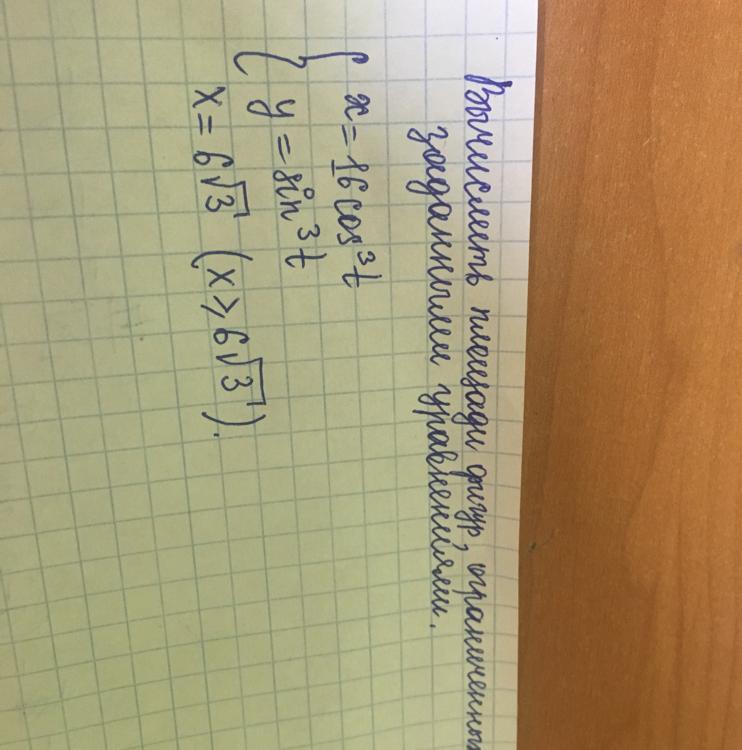 Вычислить площади фигур, ограниченных
заданными уравнениями.
{ x = 16 cos³t
{ y = sin³t
x = 6√3 (x ⩾ 6√3).